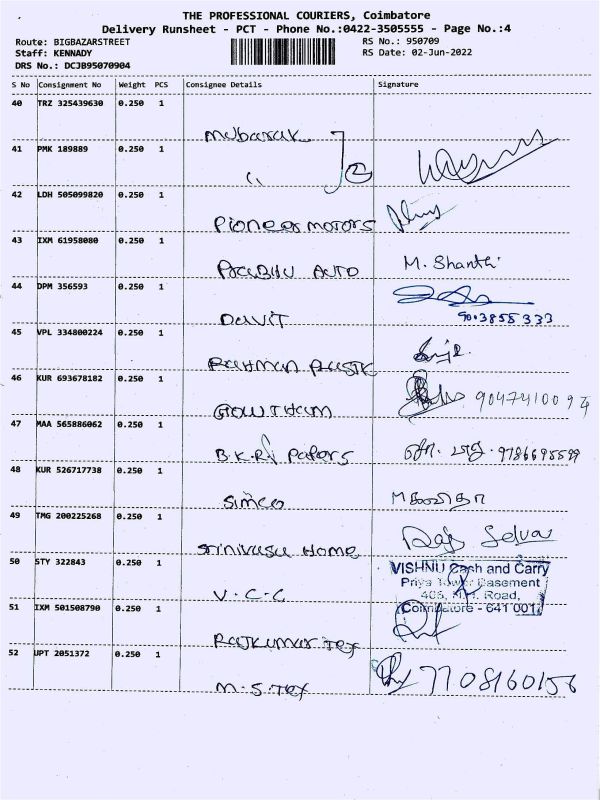 THE PROFESSIONAL COURIERS, Coimbatore
Delivery Runsheet - PCT - Phone No.:0422-3505555 - Page No.:4
Route: BIGBAZARSTREET
RS No.: 950709
Staff: KENNADY
RS Date: 02-Jun-2022
DRS No.: DCJB95070904
S No Consignment No Weight PCS Consignee Details Signature
40 TRZ 325439630 0.250 1
Mubarak
41 PMK 189889 0.250 1
" 2
42 LDH 505099820 0.250 1
Pioneer motors
43 IXM 61958080 0.250 1
M. Shanthi
PRABHU AUTO
44 DPM 356593 0.250 1
DAVIT
9003855333
45 VPL 334800224 0.250 1
RAHMAN PLASTIC
46 KUR 693678182 0.250 1
GOWTHAM
47 MAA 565886062 0.250 1
B.K.R. Papers
48 KUR 526717738 0.250 1
Simco
49 TMG 200225268 0.250 1
Raj Selva
Srinivasa Home
50 STY 322843 0.250 1
VISHNU Cash and Carry
Priya Tower Basement
406, N.H. Road,
Coimbatore - 641 001.
V.C.C
51 IXM 501508790 0.250 1
Rajkumar Tex
52 UPT 2051372 0.250 1
7708160156
M.S.Tex